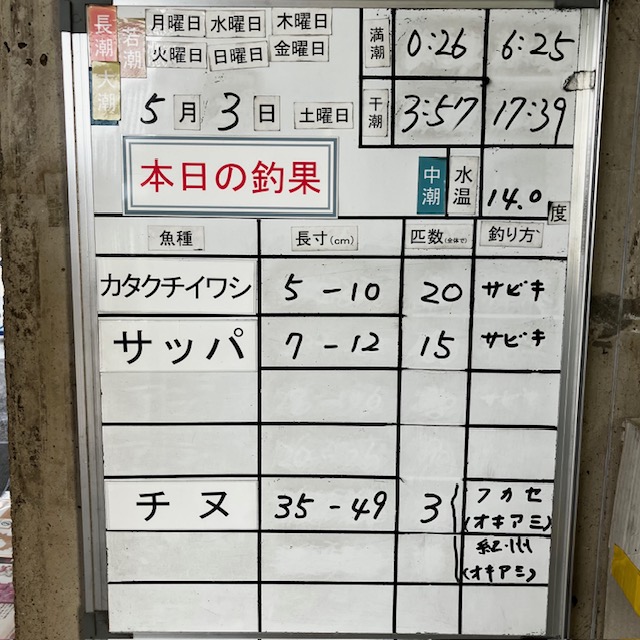 長潮 若潮 月曜日 水曜日 木曜日 満潮 0:26 6:25
大潮 火曜日 日曜日 金曜日
5月3日 土曜日 干潮 3:57 17:39
本日の釣果 中潮 水温 14.0度
魚種 長寸(cm) 匹数(全体で) 釣り方
カタクチイワシ 5-10 20 サビキ
サッパ 7-12 15 サビキ
チヌ 35-49 3 フカセ
(オキアミ)
(オキアミ)